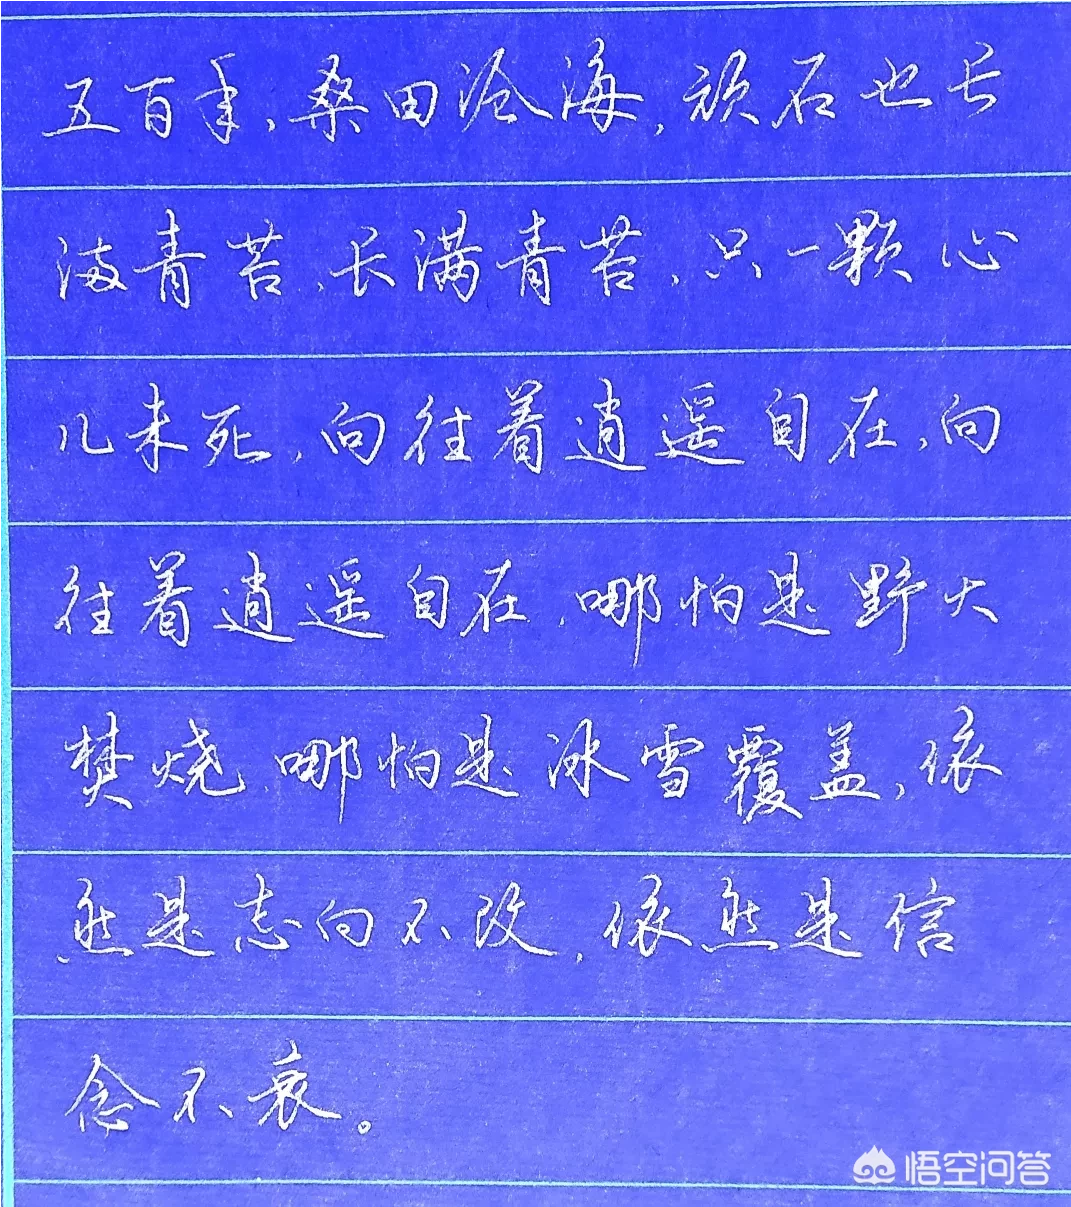 五百年,桑田沧海,顽石也长
满青苔,长满青苔,只一颗心
儿未死,向往着逍遥自在,向
往着逍遥自在,哪怕是野火
焚烧,哪怕是冰雪覆盖,依
然是志向不改,依然是信
念不衰。
悟空问答